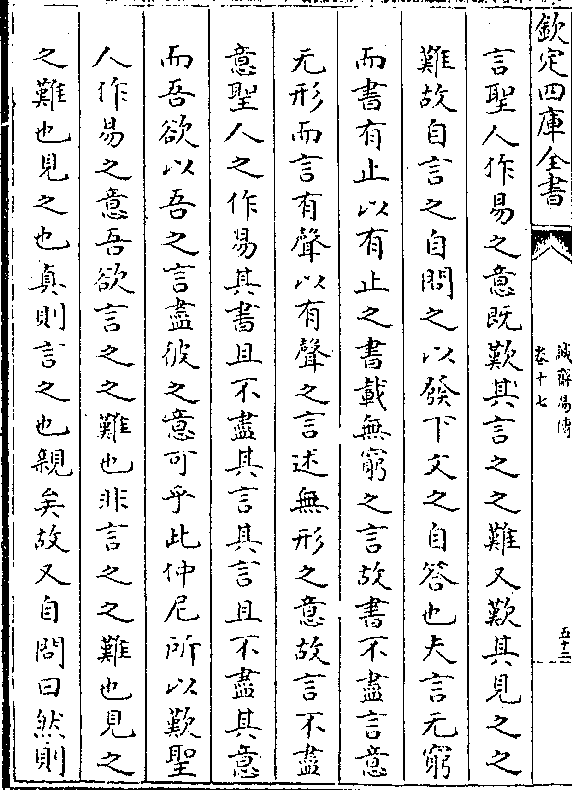 欽定四庫全書
誠齋易傳
卷十七
五十二
言聖人作易之意既歎其言之之難又歎其見之之
難故自言之自問之以發下文之自答也夫言无窮
而書有止以有止之書載無窮之言故書不盡言意
无形而言有聲以有聲之言述無形之意故言不盡
意聖人之作易其書且不盡其言其言且不盡其意
而吾欲以吾之言盡彼之意可乎此仲尼所以歎聖
人作易之意吾欲言之之難也非言之之難也見之
之難也見之也真則言之也親矣故又自問曰然則